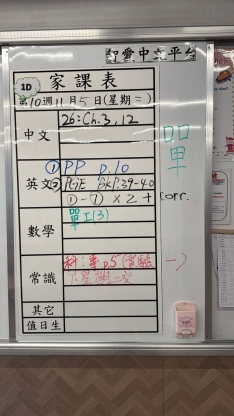 智愛中文平台
1D 家課表
第10週11月5日(星期二)
中文 26:Ch.3,12
英文 ① PP p.10
② PGE BkP.39-40
①-⑦ × 2 + Corr.
數學 單工(3)
常識 科:專p.5(實驗
下星期一交
其它
值日生